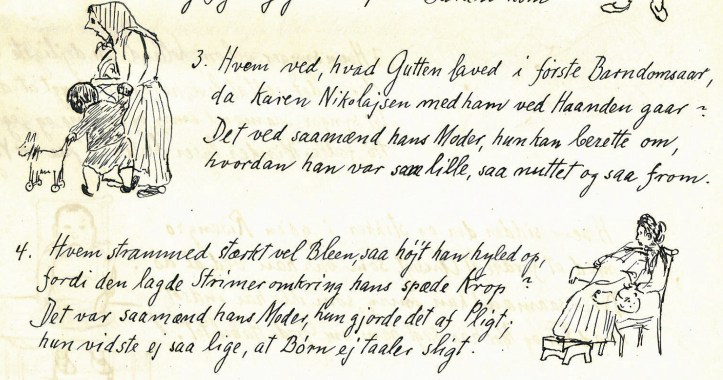 3. Hvem ved, hvad Gutten laved i første Barndomsaar,
da Karen Nikolajsen med ham ved Haanden gaar?
Det ved saamænd hans Moder, hun kan berette om,
hvordan han var saa lille, saa nuttet og saa from.
4. Hvem strammed stærkt vel Bleen, saa højt han hyled op,
fordi den lagde Strimer omkring hans spæde Krop?
Det var saamænd hans Moder, hun gjorde det af Pligt;
hun vidste ej saa lige, at Børn ej taaler sligt.